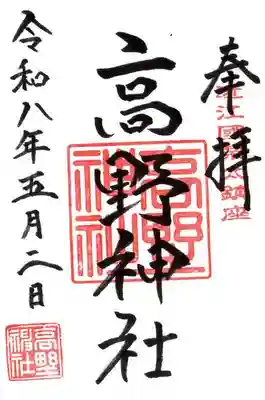 奉拝
高野神社
高野神社
令和八年五月二日
高野神社